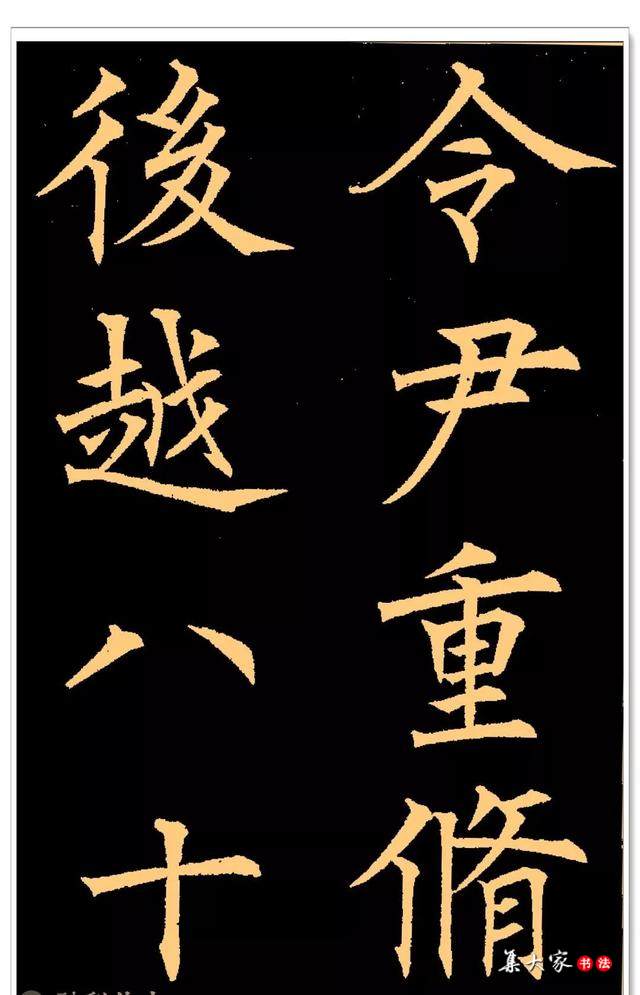 令尹重脩
後越八十
集大家书法